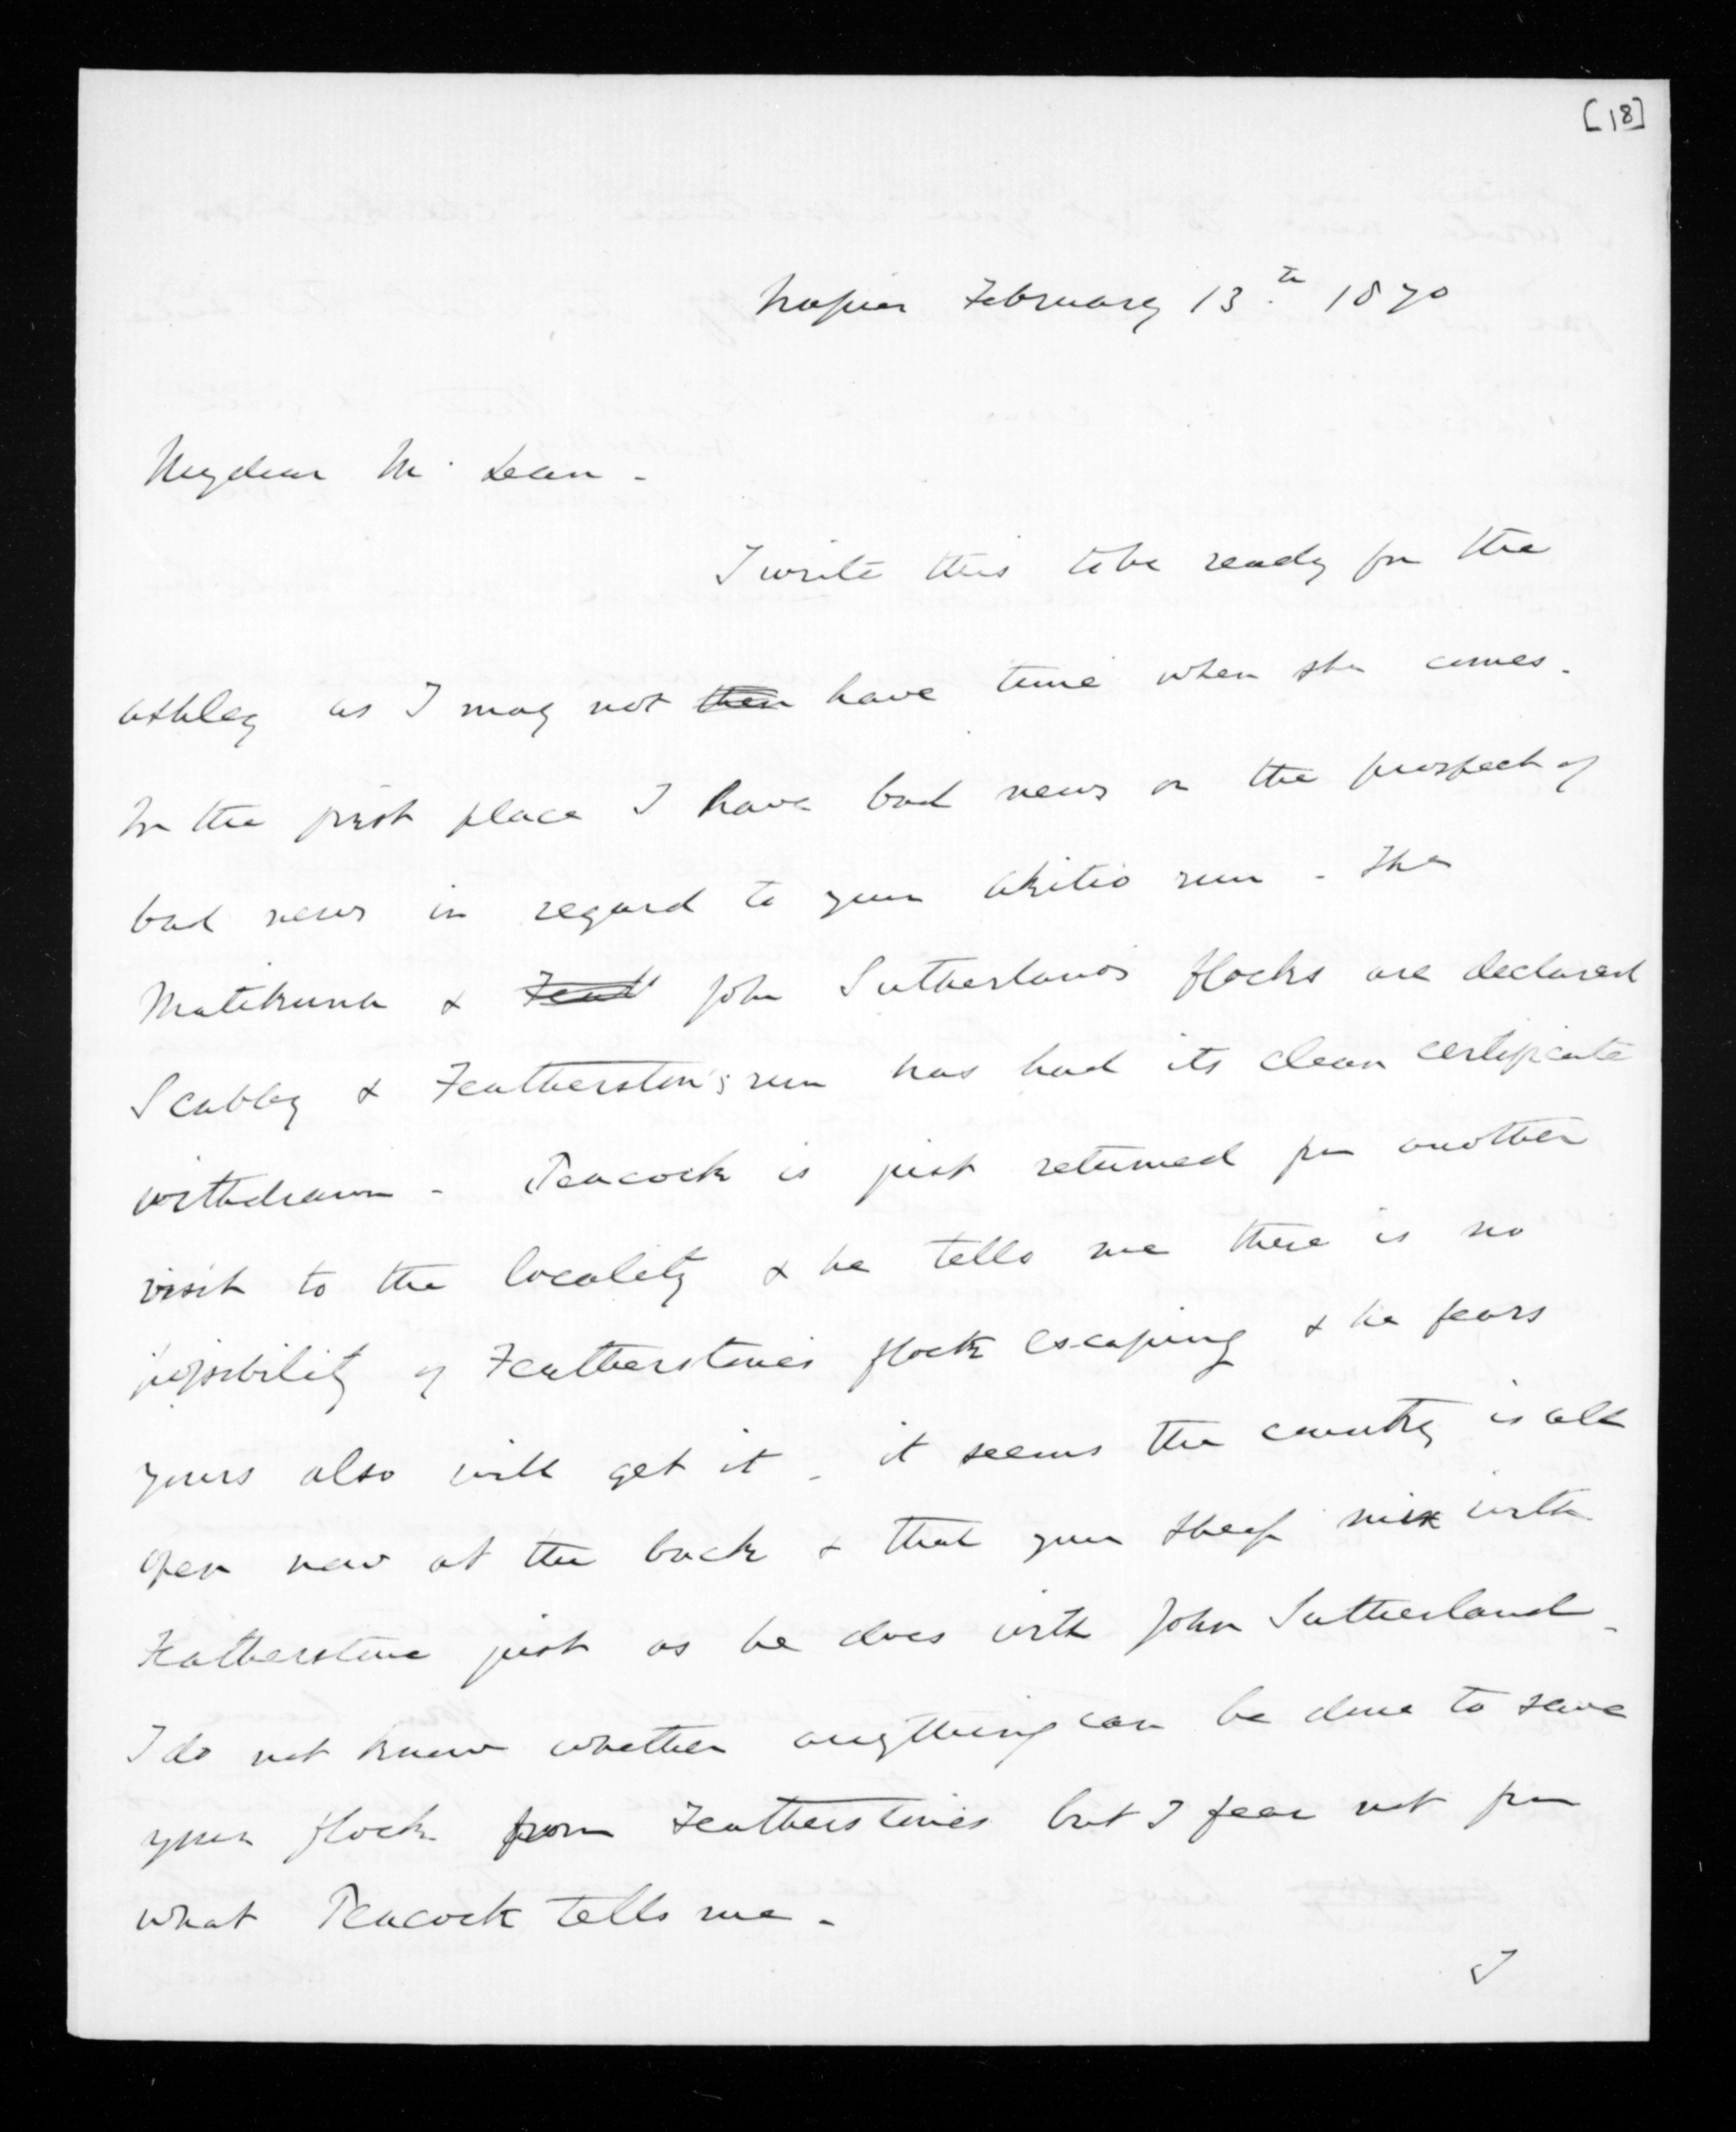 [18]
Napier February 13.th 1870
My dear McLean -
I write this to be ready for the
Ashley as I may not then have time when she comes.
In the first place I have bad news or the prospect of
bad news in regard to your Akitio run - The
Matikuna & Feat John Sutherlands flocks are declared
Scabby & Featherston's run has had its clean certificate
withdrawn - Peacock is just returned from another
visit to the locality & he tells me there is no
possibility of Featherstones flock escaping & he fears
yours also will get it - it seems the country is all
open now at the back & that your sheep mix with
Featherstone just as he does with John Sutherland -
I do not know whether anything can be done to save
your flock from Featherstones but I fear not from
what Peacock tells me -
I